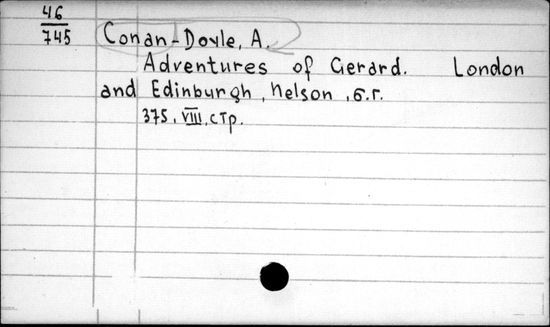 46
745
Conan-Doyle, A.
Adventures of Gerard. London
and Edinburgh, Nelson, б.г.
375, VIII, стр.